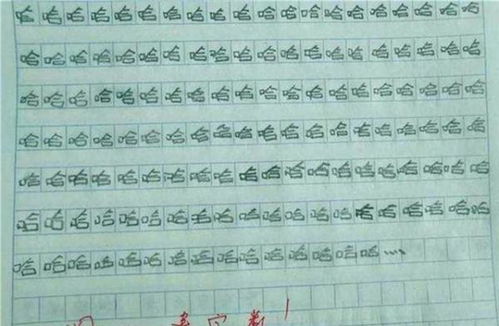 哈哈哈哈哈哈哈哈哈哈哈哈哈哈哈哈哈哈哈哈
哈哈哈哈哈哈哈哈哈哈哈哈哈哈哈哈哈哈哈哈
哈哈哈哈哈哈哈哈哈哈哈哈哈哈哈哈哈哈哈哈
哈哈哈哈哈哈哈哈哈哈哈哈哈哈哈哈哈哈哈哈
哈哈哈哈哈哈哈哈哈哈哈哈哈哈哈哈哈哈哈哈
哈哈哈哈哈哈哈哈哈哈哈哈哈哈哈哈哈哈哈哈
哈哈哈哈哈哈哈哈哈哈哈哈哈哈哈…
字数!